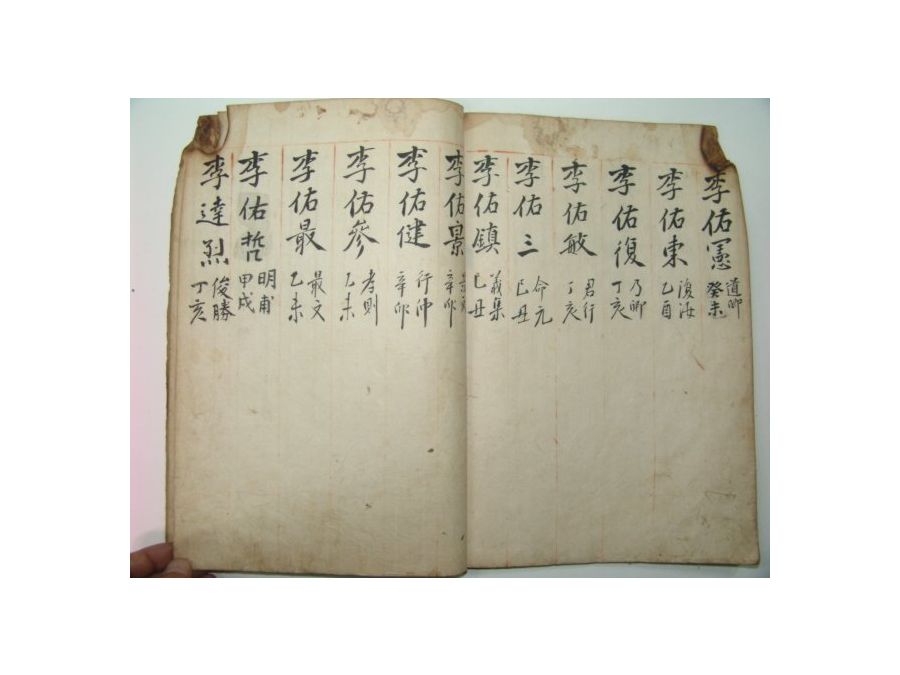 李佑憲
道卿
癸未
李佑東
乙酉
李佑復
乃卿
丁亥
李佑敏
君行
丁亥
李佑三
命元
己丑
李佑鎭
義集
己丑
李佑景
辛卯
李佑健
行仲
辛卯
李佑參
孝則
乙未
李佑最
最文
乙未
李佑哲
明甫
甲戌
李達烈
俊勝
丁亥